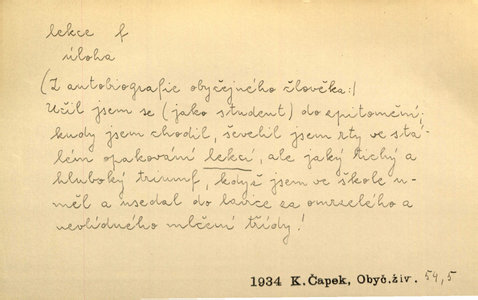 lekce f
úloha
(Z autobiografie obyčejného člověka:)
Učil jsem se (jako student) do epitomění,
kudy jsem chodil, ševelil jsem rty ve stá-
lém opakování lekcí, ale jaký tichý a
hluboký triumf, když jsem ve škole u-
měl a usedal do lavice za omrzelého a
nevlídného mlčení třídy!
1934 K.Čapek, Obyč.živ. 54,5